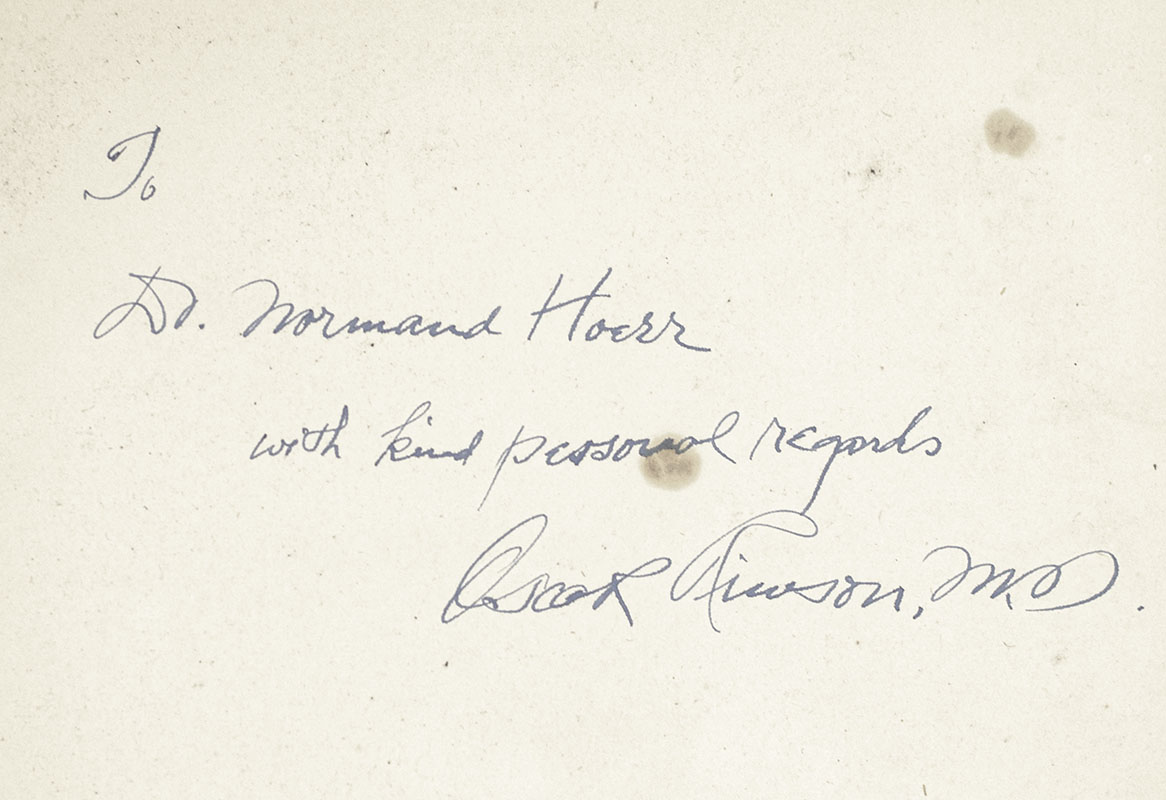 To
Dr. Normand Hoerr
with kind personal regards
Oscar M.D.